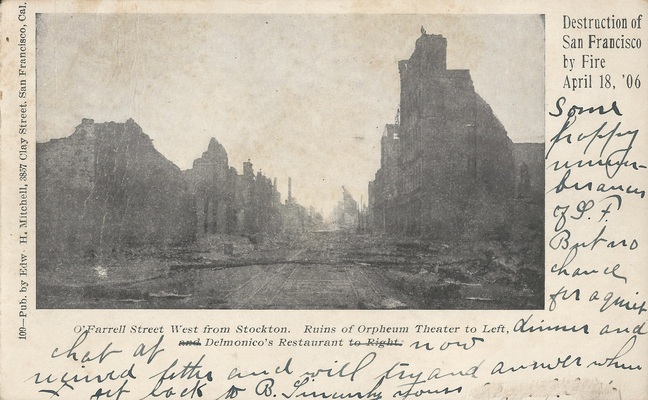 109—Pub. by Edw. H. Mitchell, 3857 Clay Street, San Francisco, Cal.
Destruction of
San Francisco
by Fire
April 18, '06
O'Farrell Street West from Stockton. Ruins of Orpheum Theater to Left,
and Delmonico's Restaurant to Right.
Some
happy
remem-
berances
of S. F.
But no
chance
for a quiet
dinner and
chat at now
received letter and will try and answer when
I get back to B. Sincerely yours